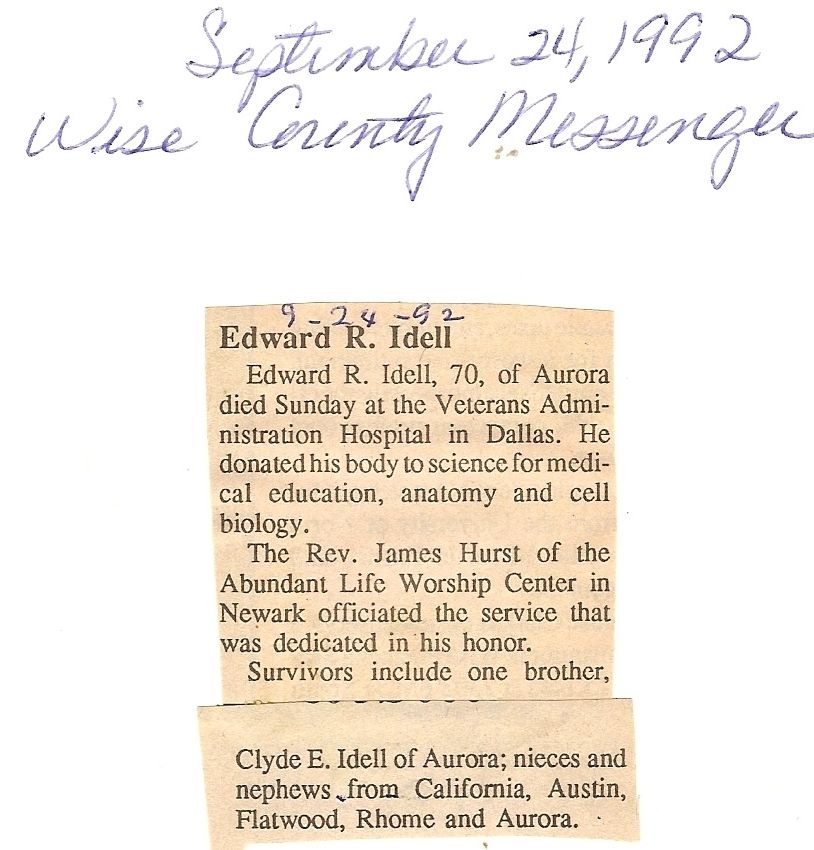 September 24, 1992
Wise County Messenger
9-24-92
Edward R. Idell
Edward R. Idell, 70, of Aurora
died Sunday at the Veterans Admi-
nistration Hospital in Dallas. He
donated his body to science for medi-
cal education, anatomy and cell
biology.
The Rev. James Hurst of the
Abundant Life Worship Center in
Newark officiated the service that
was dedicated in his honor.
Survivors include one brother,
Clyde E. Idell of Aurora; nieces and
nephews from California, Austin,
Flatwood, Rhome and Aurora.